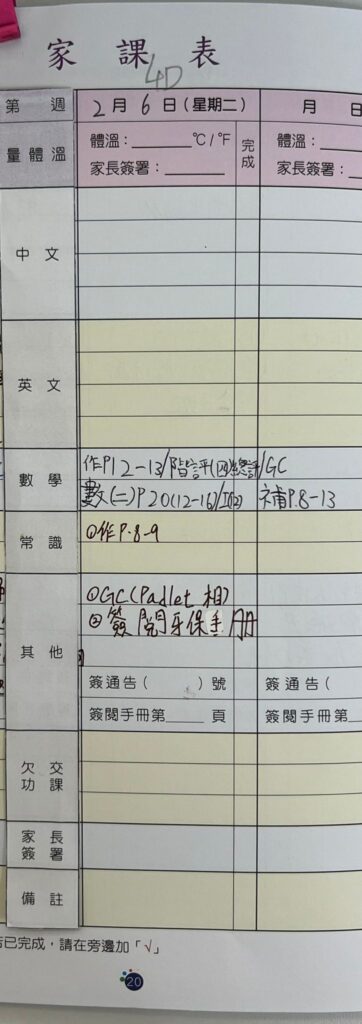 家 課 表
4D
第 週 2 月 6 日(星期二) 月 日
量體溫 體溫:______℃/℉ 完成 體溫:
家長簽署:______ 家長簽署:
中 文
英 文
數 學 作P12-13/階評(四)總評/GC
數(二)P20(12-16)/工(12) 補P.8-13
常 識 ①作P.8-9
其 他 ①GC(Padlet 相)
②簽閱牙保手册
簽通告( )號 簽通告(
簽閱手冊第____頁 簽閱手冊第
欠交功課
家長簽署
備 註
若已完成,請在旁邊加「√」
20